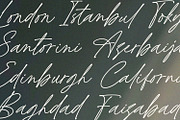 London Istanbul Toky
Santorini Azerbaija
Edinburgh Californi
Baghdad Faisabad